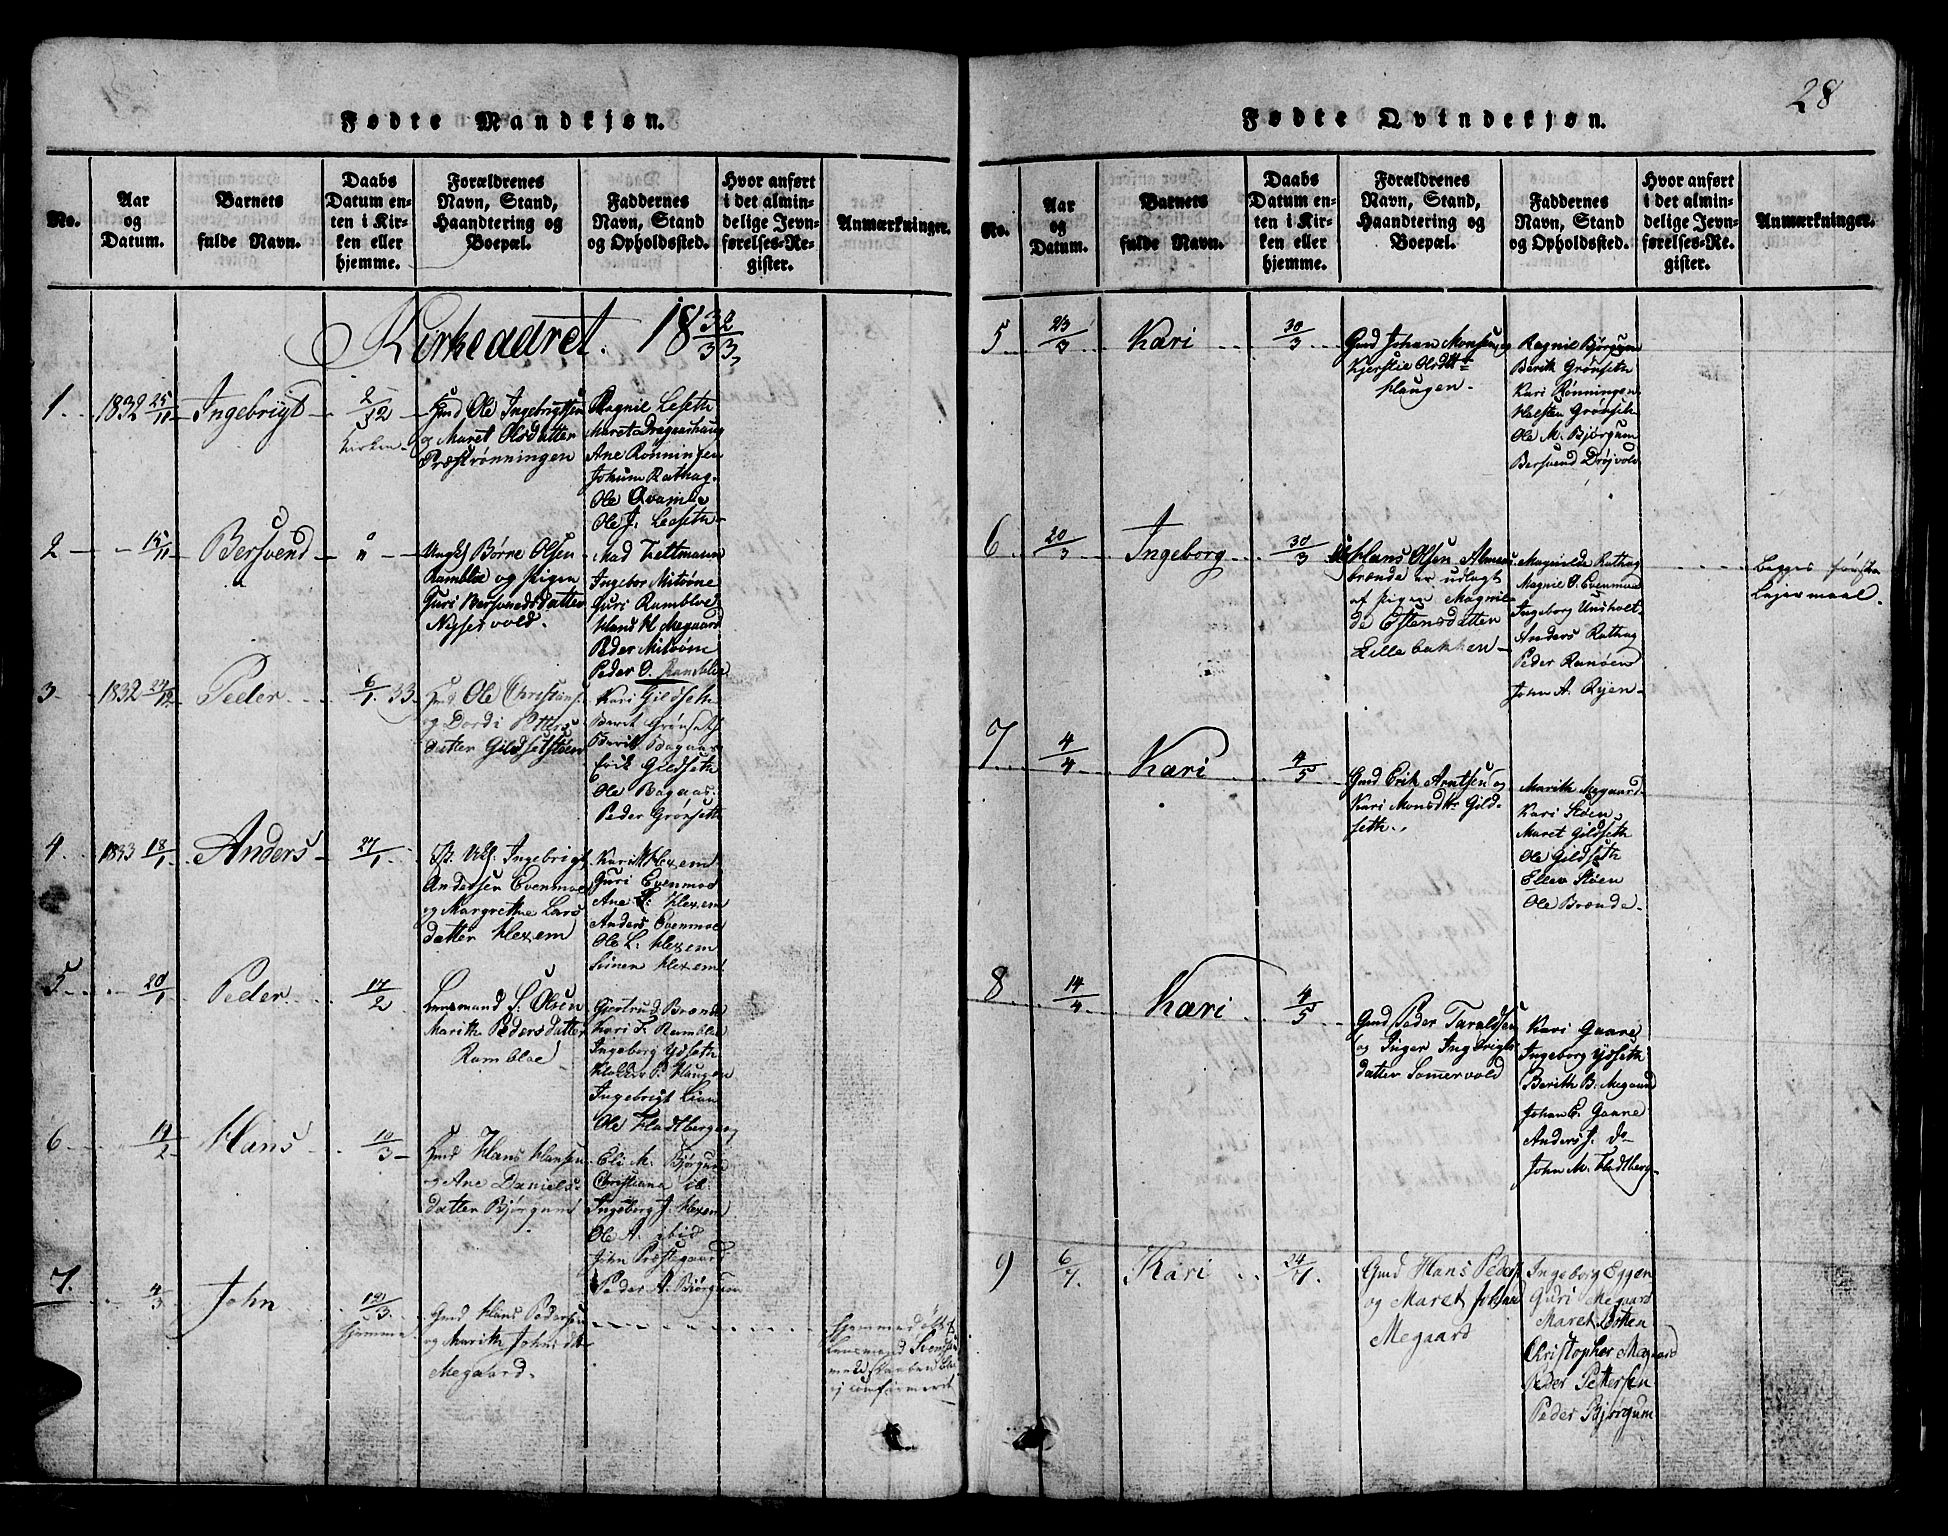 28
Fødte Mandkjøn.
No.
Aar
og
Datum.
Barnets
fulde Navn.
Daabs
Datum en-
ten i Kir-
ken eller
hjemme.
Forældrenes
Navn, Stand,
Haandtering og
Boepæl.
Faddernes
Navn, Stand
og Opholdssted.
Hvor anført
i det almin-
delige Jevn-
førelses-Re-
gister.
Anmærkninger.
Kirkeaaret. 18 32/33
1. 1832 25/11 Ingebrigt 2/12
Kirken
Gmd Ole Ingebrigtsen
og Maret Olsdatter
Præstrønningen
Ragnil Leseth
Maret Dragaashaug
Ane Rønningen
Johum Rathag.
Ole Qvamle
Ole J. Leeseth
2 15/11 Bersvend "
Ungk Børre Olsen
Ramblæ og Pigen
Guri Bersvendsdatter
Nysetvold.
Mad Zettmann
Ingebor Mitrøne
Guri Rambloe
Hans H. Megaard
Peder Mitrøne
Peder O. Rambloe
3 1832 24/12 Peder 6/1 33
Gmd Ole Christians.
og Dordi Petters
datter Gildsetstøen
Kari Gildseth
Berit Grønseth
Berit Bagaas
Erik Gildseth
Ole Bagaas
Peder Grønseth
4. 1833 18/1 Anders 27/1
Ingebrigt
Andersen Evenmoe
og Margrethe Lars
datter Hexem
Kari Hexem
Guri Evenmoe
Ane L: Hexem
Anders Evenmoe
Ole L: Hexem
Simen Hexem
5 20/1 Peder 17/2
Lensmand S: Olsen
Marith Pedersdatter
Rambloe
Gjertrud Brænde
Kari S. Rambloe
Ingeborg Ydseth
P. Haugen
Ingebrigt Lian
Ole Fladtberg
6 19/2 Hans 10/3
Gmd Hans Hansen
og Ane Daniels
datter Bjørgum
Eli M. Bjørgum
Christiana ib
Ingeborg J. Hexem
Ole A. ibid
John Præstegaard
Peder A. Bjørgum
7. 4/3 John 12/3
hjemme
Gmd Hans Pedersen
og Marith Johnsdtr
Megaard.
Hjemmedøbt af
Lensmand Svend
med
ej conformeret
Fødte Qvindekjøn.
No.
Aar
og
Datum.
Barnets
fulde Navn.
Daabs
Datum en-
ten i Kir-
ken eller
hjemme.
Forældrenes
Navn, Stand,
Haandtering og
Boepæl.
Faddernes
Navn, Stand
og Opholdsted.
Hvor anført
i det almin-
delige Jevn-
førelses-Re.
gister.
Anmærkninger.
5 23/3 Kari 30/3
Gmd Johan Monsen og
Kjerstie Olsdtr
Haugen.
Ragnil Bjørgum
Berith Grønseth
Kari Rønningen
Halsten Grønseth
Ole M. Bjørgum
Bersvend Drøjvold
6 20/3 Ingeborg 30/3
Hans Olsen Almaas
brænde er udlagt
af pigen Magnil-
de Estensdatter
Lillebakken
Magnilde Rathag
Magnil O. Evenmoe
Ingeborg Undholt
Anders Rathag
Peder Ranøen
John A. Ryen
Begges første
Lejermaal.
7 4/4 Kari 4/5
Gmd Erik Arntsen og
Kari Monsdtr Gild-
seth.
Marith Megaard
Kari Støen
Maret Gildseth
Ole Gildseth
Ellev Støen
Ole Brænde
8 14/4 Kari 4/5
Gmd Peder Taraldsen
og Inger Ingbrigts
datter Somervold
Kari Gaare
Ingeborg Ydseth
Berith B. Megaard
Johan E. Gaare
Anders J. do
John M. Fladtberg
9 6/7. Kari 24/7.
Gmd Hans Peders
og Maret Johns
Megaard
Ingeborg Eggen
Guri Megaard
Maret Østen
Christopher Megaard
Peder Pettersen
Peder Bjørgum